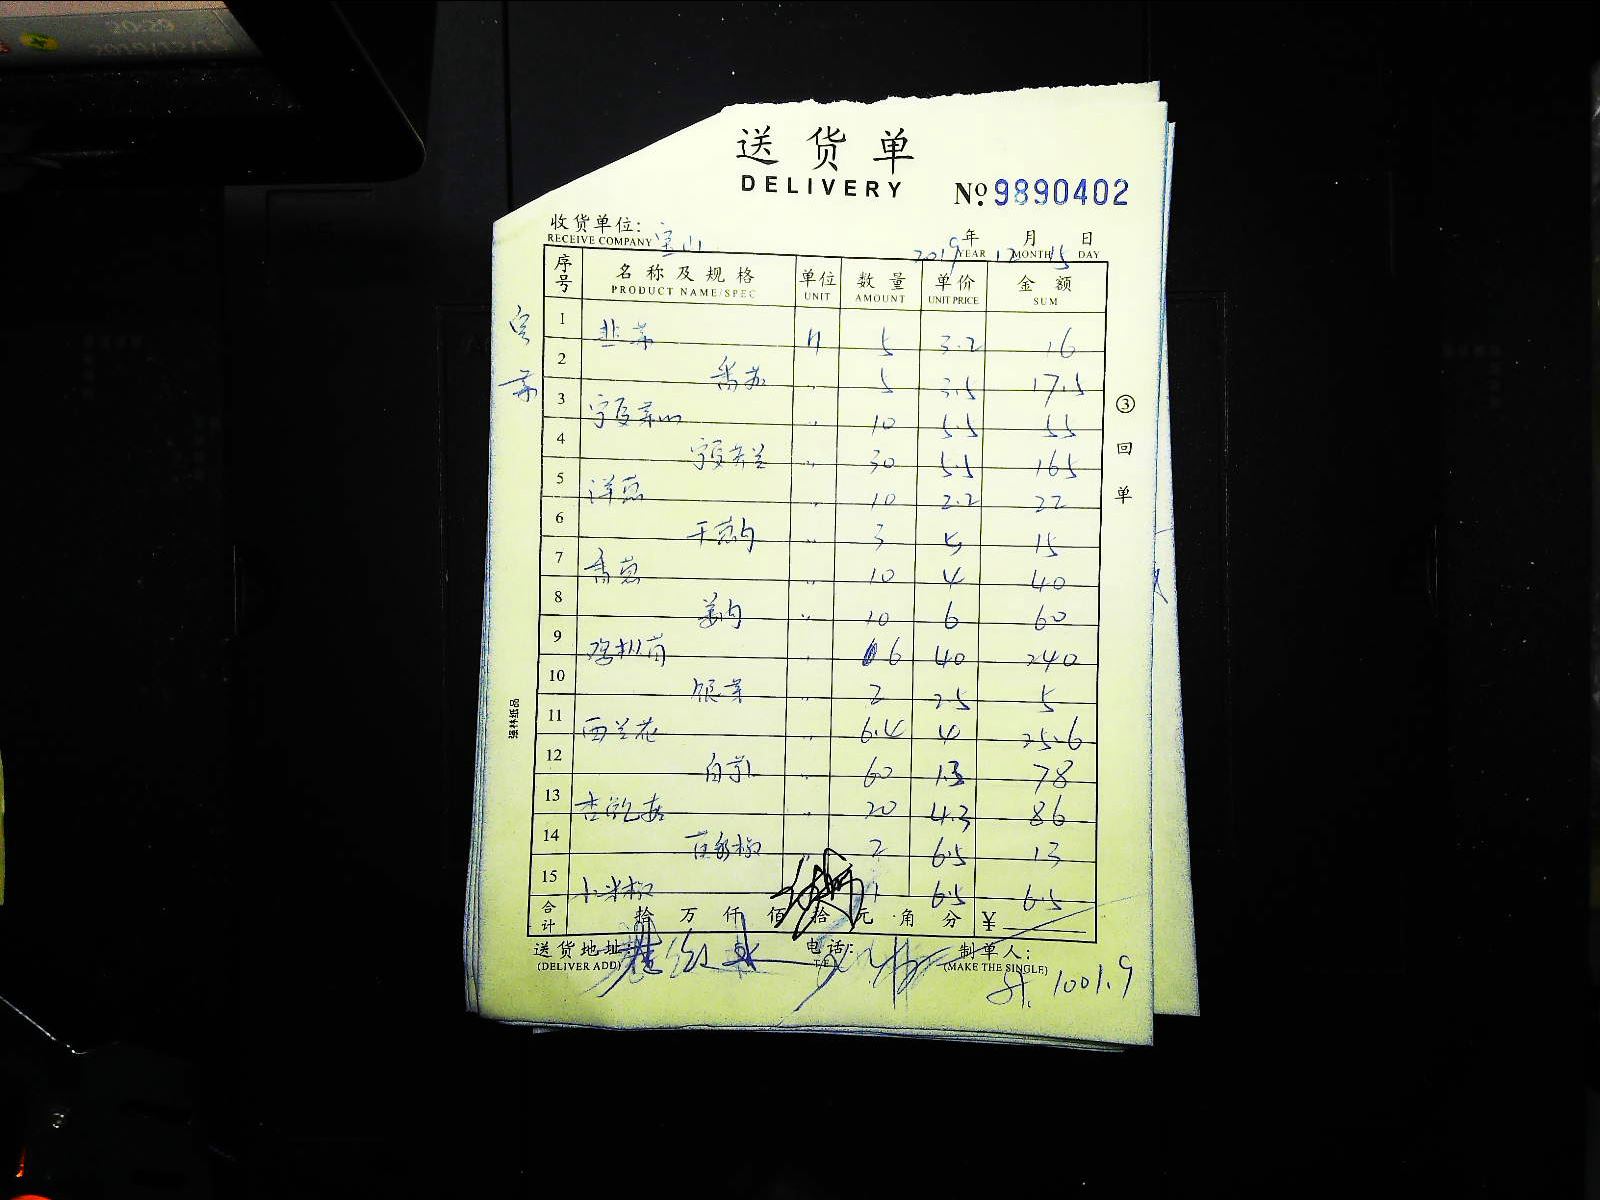 送货单
DELIVERY
№ 9890402
收货单位: 宝山
RECEIVE COMPANY
2019年 12月 15日
YEAR MONTH DAY
序号 名称及规格 单位 数量 单价 金额
PRODUCT NAME/SPEC UNIT AMOUNT UNIT PRICE SUM
1 韭菜 斤 5 3.2 16
2 番茄 〃 5 3.5 17.5
3 宁夏菜心 〃 10 5.5 55
4 宁夏芥兰 〃 30 5.5 165
5 洋葱 〃 10 2.2 22
6 干葱肉 〃 3 5 15
7 香葱 〃 10 4 40
8 姜肉 〃 10 6 60
9 鸡枞菌 〃 6 40 240
10 银芽 〃 2 2.5 5
11 西兰花 〃 6.4 4 25.6
12 〃 60 1.3 78
13 杏鲍菇 〃 20 4.3 86
14 椒 〃 2 6.5 13
15 小米椒 1 6.5 6.5
合计 拾 万 仟 佰 拾 元 角 分 ¥
送货地址:
(DELIVER ADD)
电话:
TEL
制单人:
(MAKE THE SINGLE)
1001.9
③回单
强林纸品